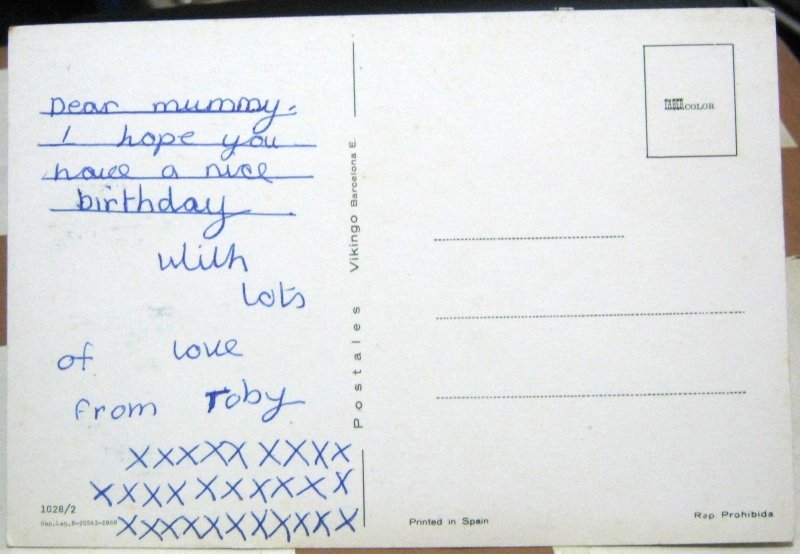 Dear mummy.
I hope you
have a nice
birthday
with
lots
of love
from Toby
XXXXX XXXX
XXXX XXXXXX
XXXXXXXXXXX
1028/2
Dep. Leg. B-25543-1969
Postales Vikingo Barcelona E.
FABER COLOR
Printed in Spain
Rep. Prohibida